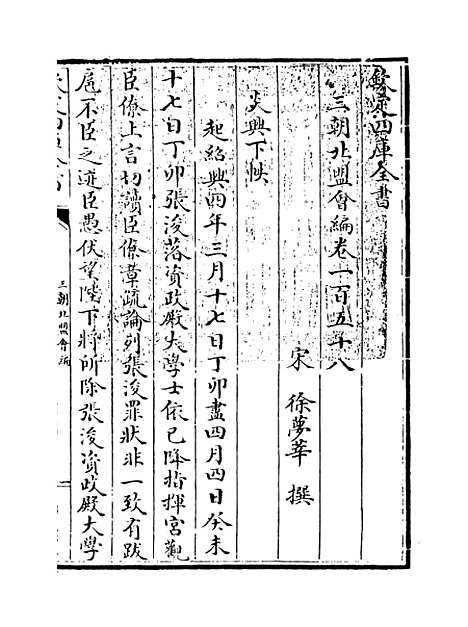 欽定四庫全書
三朝北盟會編卷一百五十八
宋 徐夢莘 撰
炎興下帙
起紹興四年三月十七日丁卯盡四月四日癸未
十七日丁卯張浚落資政殿大學士依已降指揮宮觀
臣僚上言切讀臣僚章疏論列張浚罪狀非一致有跋
扈不臣之迹臣愚伏望陛下將所除張浚資政殿大學
三朝北盟會編
一